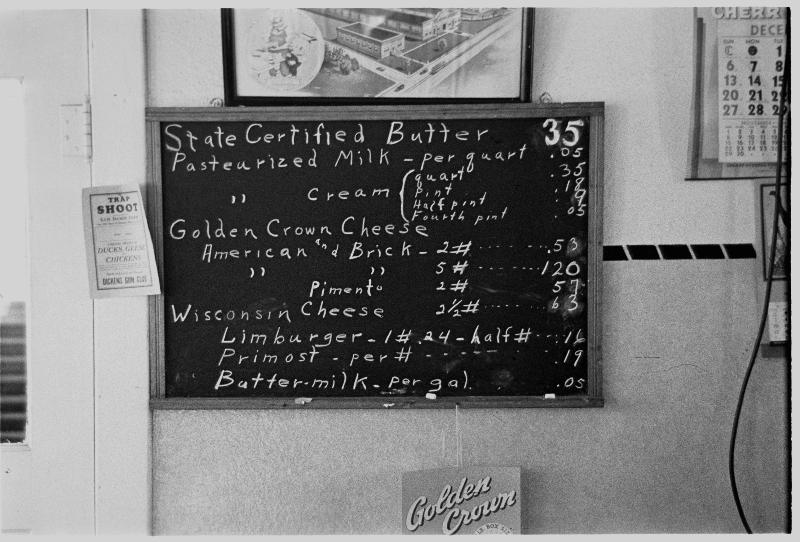 State Certified Butter 35
Pasteurized Milk - per quart .05
" Cream { quart .35
Pint .18
Half pint .9
Fourth pint 05
Golden Crown Cheese
American and Brick - 2# ....... .53
" " 5# ....... 120
Pimento 2# ....... 57
Wisconsin Cheese 2½# ....... 63
Limburger - 1# .24 - half# ... .16
Primost - per # - - - - - .19
Butter-milk - per gal. .05
TRAP
SHOOT
DUCKS, GEESE
CHICKENS
DICKENS GUN CLUB
CHERR
DECE
SUN MON TUE
1
6 7 8
13 14 15
20 21 22
27 28 29
Golden
Crown